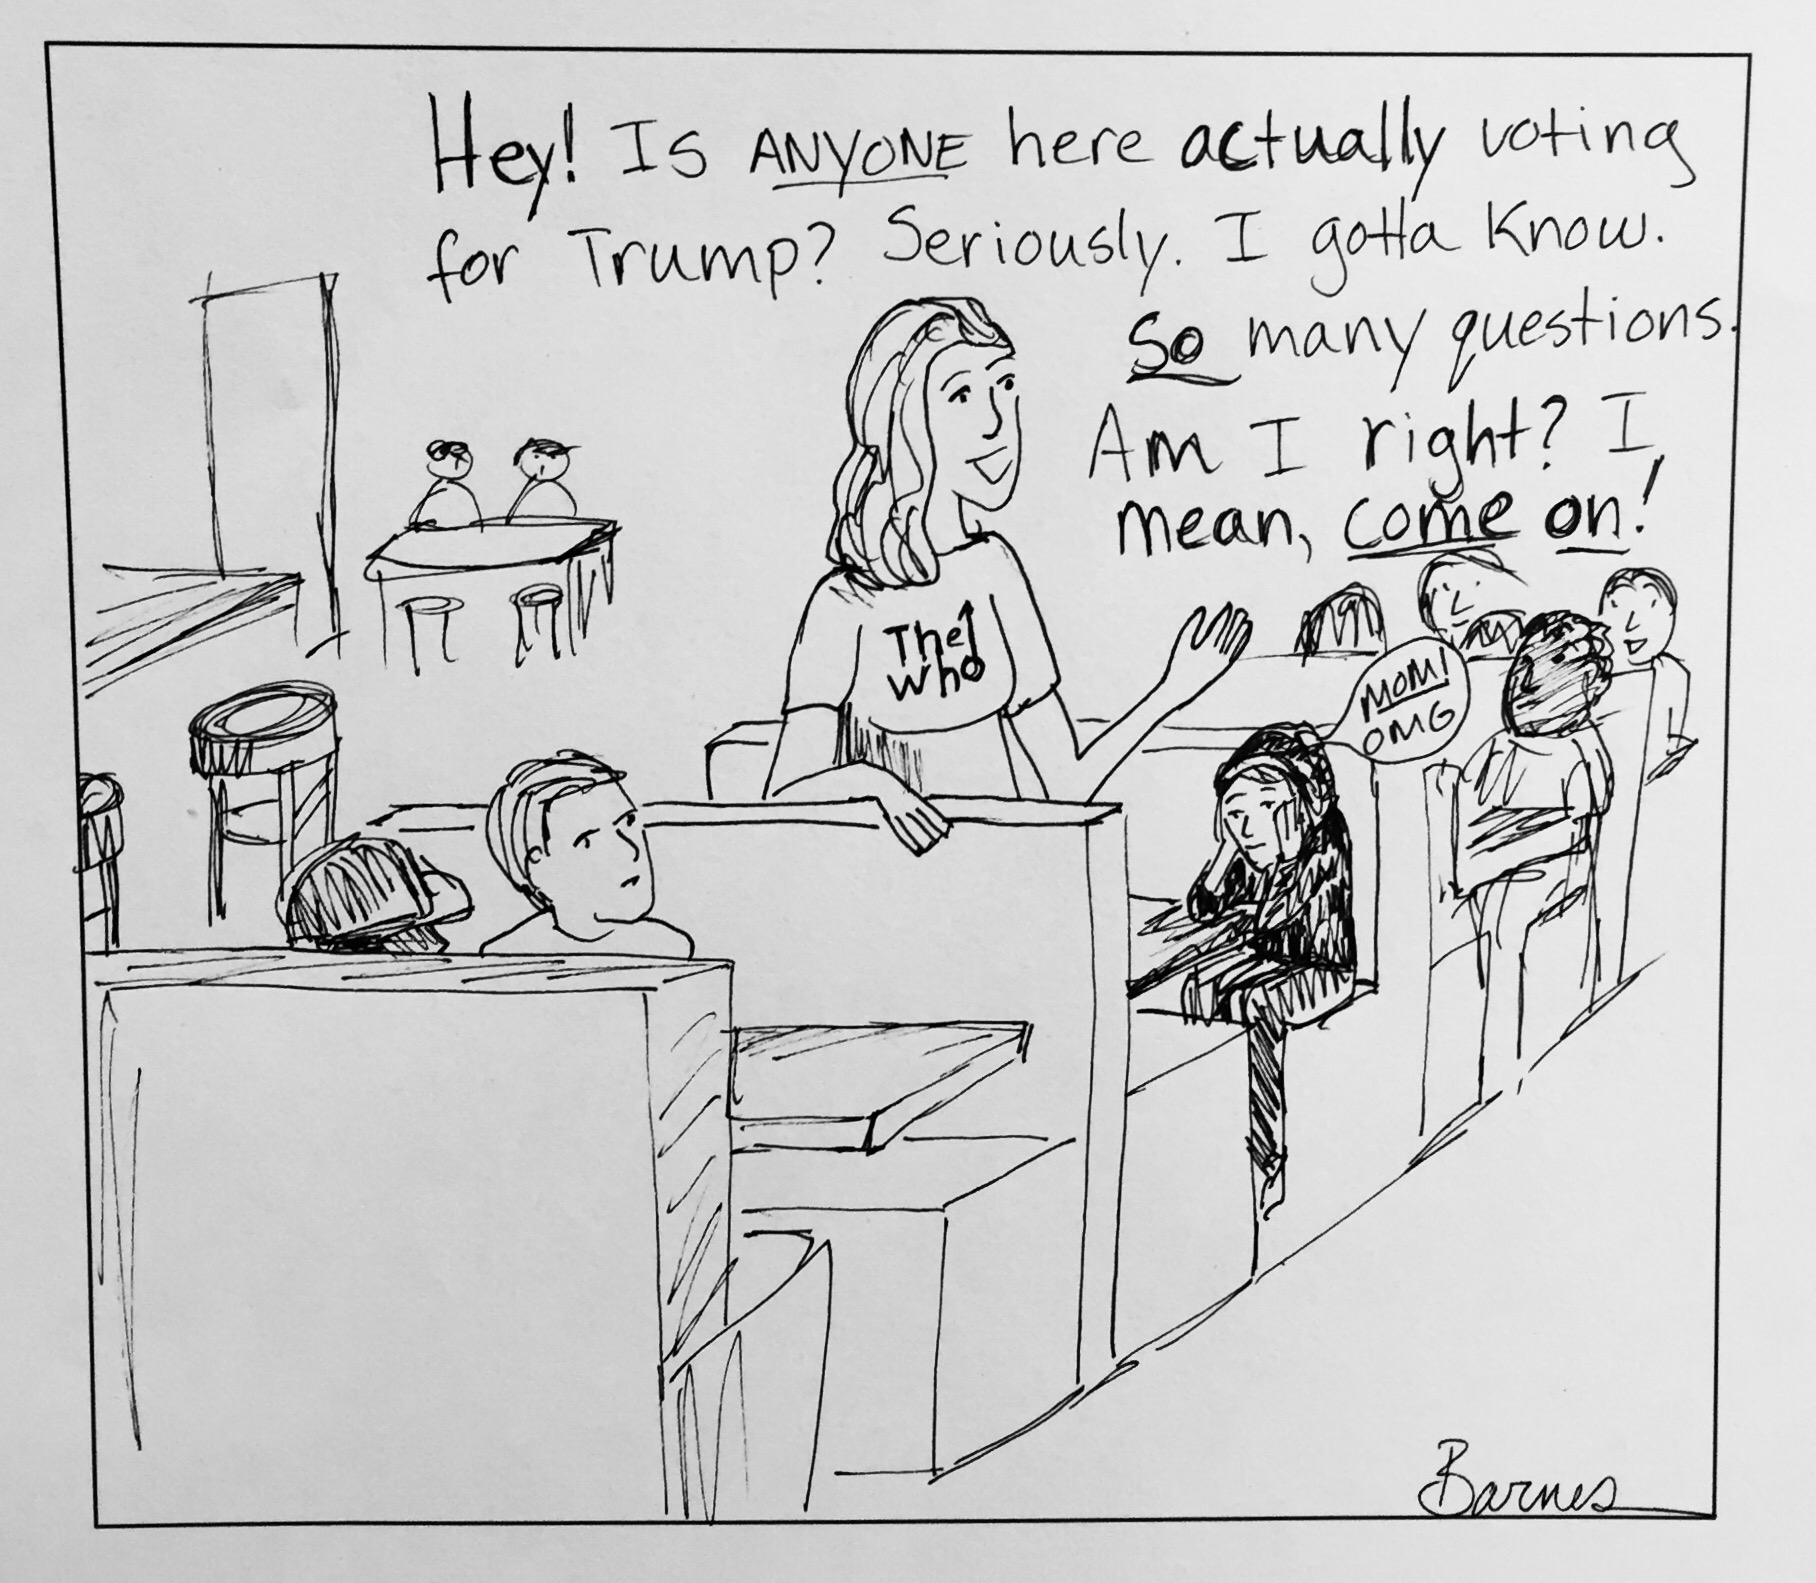 Hey! Is ANYONE here actually voting
for Trump? Seriously. I gotta know.
So many questions.
Am I right? I
mean, come on!
The
Who
MOM!
OMG
Barnes